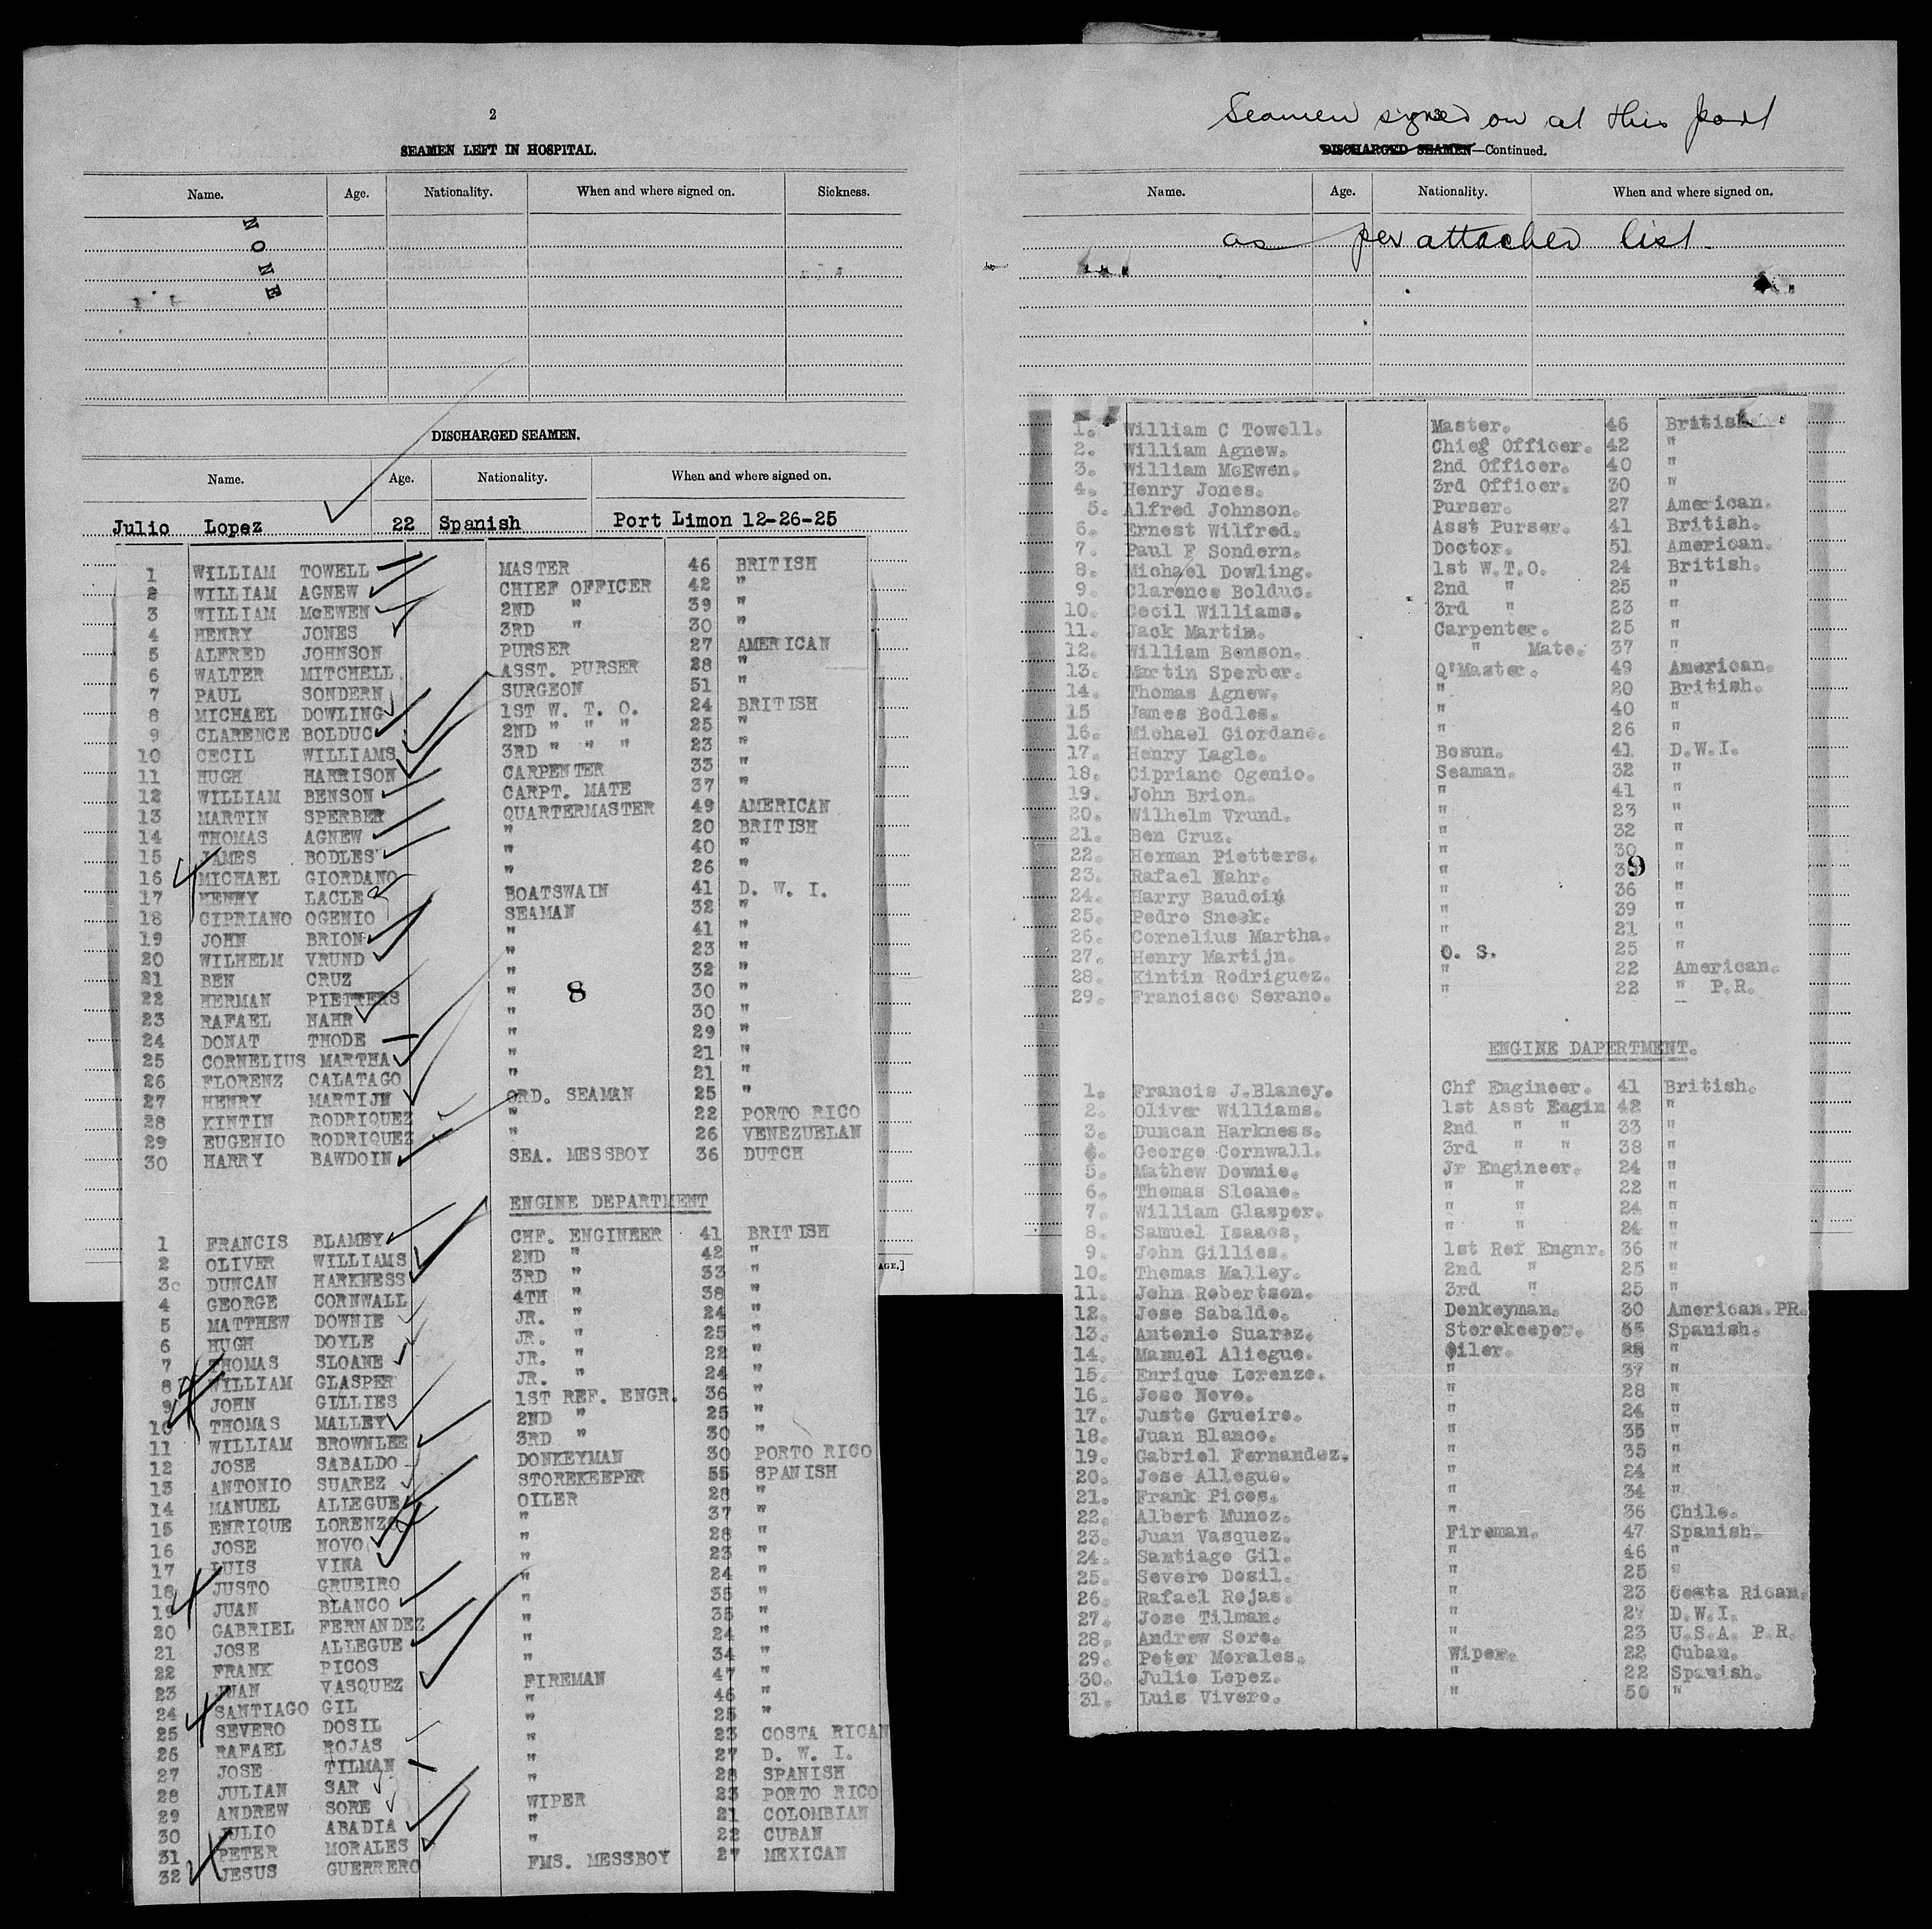 2
SEAMEN LEFT IN HOSPITAL.
Name. Age. Nationality. When and where signed on. Sickness.
NONE
DISCHARGED SEAMEN.
Name. Age. Nationality. When and where signed on.
Julio Lopez 22 Spanish Port Limon 12-26-25
1 WILLIAM TOWELL MASTER 46 BRITISH
2 WILLIAM AGNEW CHIEF OFFICER 42 "
3 WILLIAM McEWEN 2ND " 39 "
4 HENRY JONES 3RD " 30 "
5 ALFRED JOHNSON PURSER 27 AMERICAN
6 WALTER MITCHELL ASST. PURSER 28 "
7 PAUL SONDERN SURGEON 51 "
8 MICHAEL DOWLING 1ST W. T. O. 24 BRITISH
9 CLARENCE BOLDUC 2ND " " " 25 "
10 CECIL WILLIAMS 3RD " " " 23 "
11 HUGH HARRISON CARPENTER 33 "
12 WILLIAM BENSON CARPT. MATE 37 "
13 MARTIN SPERBER QUARTERMASTER 49 AMERICAN
14 THOMAS AGNEW " 20 BRITISH
15 JAMES BODLES " 40 "
16 MICHAEL GIORDANO " 26 "
17 HENRY LACLE BOATSWAIN 41 D. W. I.
18 CIPRIANO OGENIO SEAMAN 32 "
19 JOHN BRION " 41 "
20 WILHELM VRUND " 23 "
21 BEN CRUZ " 32 "
22 HERMAN PIETTERS " 8 30 "
23 RAFAEL NAHR " 30 "
24 DONAT THODE " 29 "
25 CORNELIUS MARTHA " 21 "
26 FLORENZ CALATAGO " 21 "
27 HENRY MARTIJN ORD. SEAMAN 25 "
28 KINTIN RODRIQUEZ " 22 PORTO RICO
29 EUGENIO RODRIQUEZ " 26 VENEZUELAN
30 HARRY BAWDOIN SEA. MESSBOY 36 DUTCH
ENGINE DEPARTMENT
1 FRANCIS BLAMEY CHF. ENGINEER 41 BRITISH
2 OLIVER WILLIAMS 2ND " 42 "
3 DUNCAN HARKNESS 3RD " 33 "
4 GEORGE CORNWALL 4TH " 38 "
5 MATTHEW DOWNIE JR. " 24 "
6 HUGH DOYLE JR. " 25 "
7 THOMAS SLOANE JR. " 22 "
8 WILLIAM GLASPER JR. " 24 "
9 JOHN GILLIES 1ST REF. ENGR. 36 "
10 THOMAS MALLEY 2ND " 25 "
11 WILLIAM BROWNLEE 3RD " 30 "
12 JOSE SABALDO DONKEYMAN 30 PORTO RICO
13 ANTONIO SUAREZ STOREKEEPER 55 SPANISH
14 MANUEL ALLEGUE OILER 28 "
15 ENRIQUE LORENZO " 37 "
16 JOSE NOVO " 28 "
17 LUIS VINA " 23 "
18 JUSTO GRUEIRO " 24 "
19 JUAN BLANCO " 35 "
20 GABRIEL FERNANDEZ " 35 "
21 JOSE ALLEGUE " 24 "
22 FRANK PICOS " 34 "
23 JUAN VASQUEZ FIREMAN 47 "
24 SANTIAGO GIL " 46 "
25 SEVERO DOSIL " 25 "
26 RAFAEL ROJAS " 23 COSTA RICAN
27 JOSE TILMAN " 27 D. W. I.
28 JULIAN SAR " 28 SPANISH
29 ANDREW SORE WIPER 23 PORTO RICO
30 JULIO ABADIA " 21 COLOMBIAN
31 PETER MORALES " 22 CUBAN
32 JESUS GUERRERO FMS. MESSBOY 27 MEXICAN
AGE.]
Seamen signed on at this port
DISCHARGED SEAMEN—Continued.
Name. Age. Nationality. When and where signed on.
as per attached list.
1. William C Towell. Master. 46 British.
2. William Agnew. Chieg Officer. 42 "
3. William McEwen. 2nd Officer. 40 "
4. Henry Jones. 3rd Officer. 30 "
5. Alfred Johnson. Purser. 27 American.
6. Ernest Wilfred. Asst Purser. 41 British.
7. Paul F Sondern. Doctor. 51 American.
8. Michael Dowling. 1st W.T.O. 24 British.
9. Clarence Bolduc. 2nd " 25 "
10. Cecil Williams. 3rd " 23 "
11. Jack Martin. Carpenter. 25 "
12. William Benson. " Mate. 37 "
13. Martin Sperber. Q'Master. 49 American.
14. Thomas Agnew. " 20 British.
15 James Bodles. " 40 "
16. Michael Giordano. " 26 "
17. Henry Lagle. Bosun. 41 D.W.I.
18. Cipriano Ogenio. Seaman. 32 "
19. John Brion. " 41 "
20. Wilhelm Vrund. " 23 "
21. Ben Cruz. " 32 "
22. Herman Pietters. " 30 "
23. Rafael Nahr. " 30 9 "
24. Harry Baudoin " 36 "
25. Pedro Sneek. " 39 "
26. Cornelius Martha. " 21 "
27. Henry Martijn. O. S. 25 "
28. Kintin Rodriguez. " 22 American.
29. Francisco Serano. " 22 " P.R.
ENGINE DAPERTMENT.
1. Francis J.Blaney. Chf Engineer. 41 British.
2. Oliver Williams. 1st Asst Eagin 42 "
3. Duncan Harkness. 2nd " " 33 "
4. George Cornwall. 3rd " " 38 "
5. Mathew Downie. Jr Engineer. 24 "
6. Thomas Sloane. " " 22 "
7. William Glasper. " " 24 "
8. Samuel Isaacs. " " 24 "
9. John Gillies. 1st Ref Engnr. 36 "
10. Thomas Malley. 2nd " 25 "
11. John Robertson. 3rd " 25 "
12. Jose Sabaldo. Donkeyman. 30 American.PR.
13. Antonio Suarez. Storekeeper. 55 Spanish.
14. Manuel Aliegue. Oiler. 28 "
15. Enrique Lorenzo. " 37 "
16. Jose Novo. " 28 "
17. Justo Grueiro. " 24 "
18. Juan Blanco. " 35 "
19. Gabriel Fernandez. " 35 "
20. Jose Allegue. " 24 "
21. Frank Picos. " 34 "
22. Albert Munoz. " 36 Chile.
23. Juan Vasquez. Fireman. 47 Spanish.
24. Santiago Gil. " 46 "
25. Severo Dosil. " 25 "
26. Rafael Rojas. " 23 Costa Rican.
27. Jose Tilman. " 27 D.W.I.
28. Andrew Sore. " 23 U.S.A. P.R.
29. Peter Morales. Wiper. 22 Cuban.
30. Julio Lopez. " 22 Spanish.
31. Luis Vivero. " 50 "